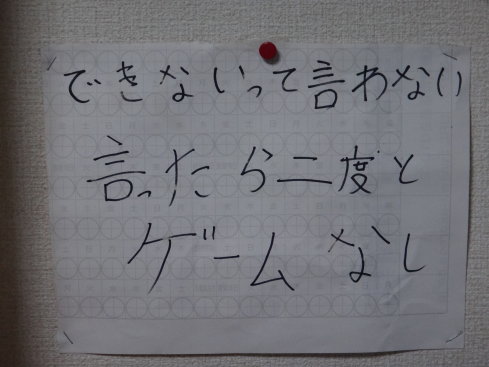 できないって言わない
言ったら二度と
ゲームなし